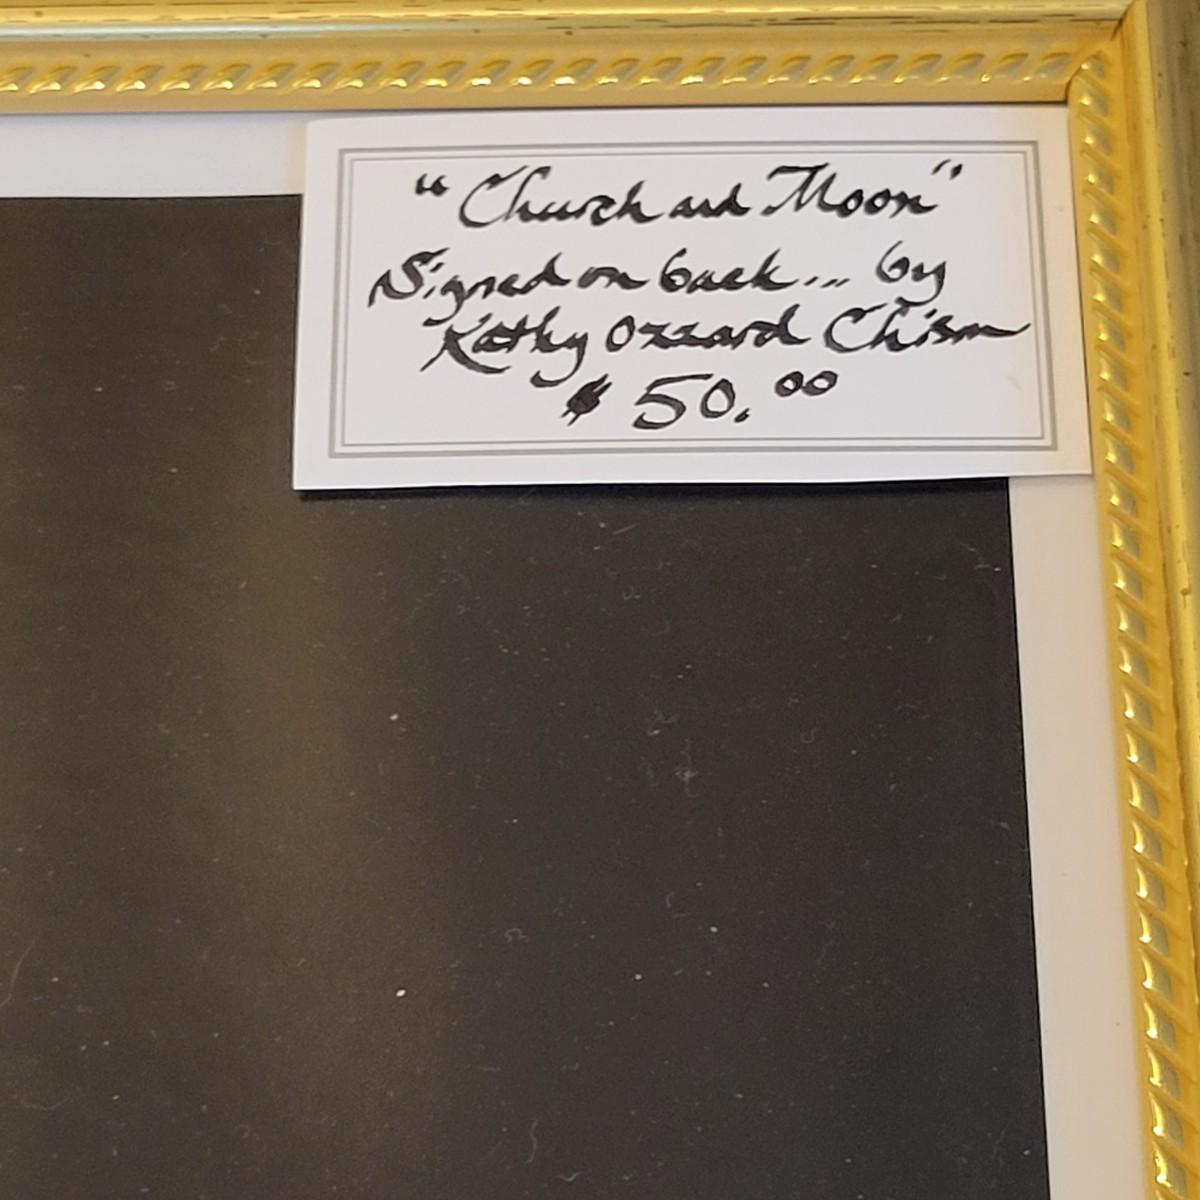 "Church and Moon"
Signed on back... by
Kathy Ozzard Chism
$ 50.00